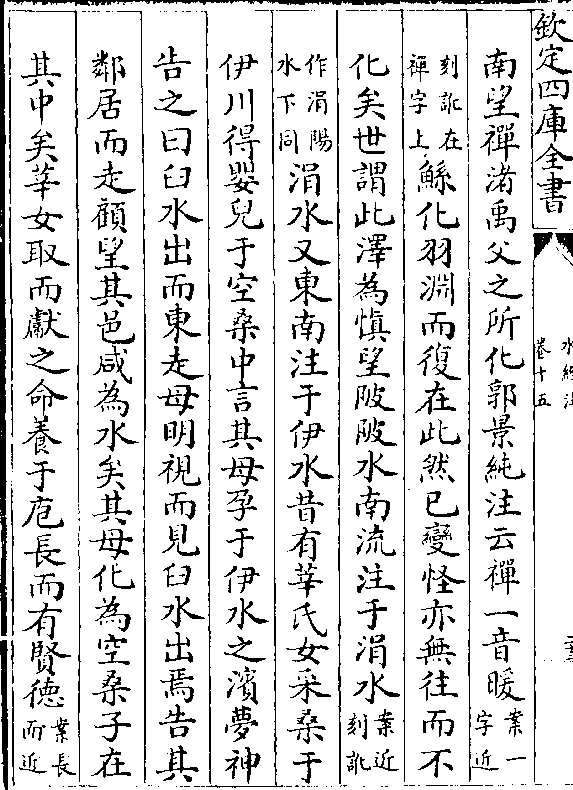 欽定四庫全書
水經注
卷十五
南望禪渚禹父之所化郭景純注云禪一音暖案一字近
刻訛在禪字上鯀化羽淵而復在此然已變怪亦無往而不
化矣世謂此澤為慎望陂陂水南流注于涓水案近刻訛
作涓陽水下同涓水又東南注于伊水昔有莘氏女采桑于
伊川得嬰兒于空桑中言其母孕于伊水之濱夢神
告之曰臼水出而東走母明視而見臼水出焉告其
鄰居而走顧望其邑咸為水矣其母化為空桑子在
其中矣莘女取而獻之命養于庖長而有賢德案長而近